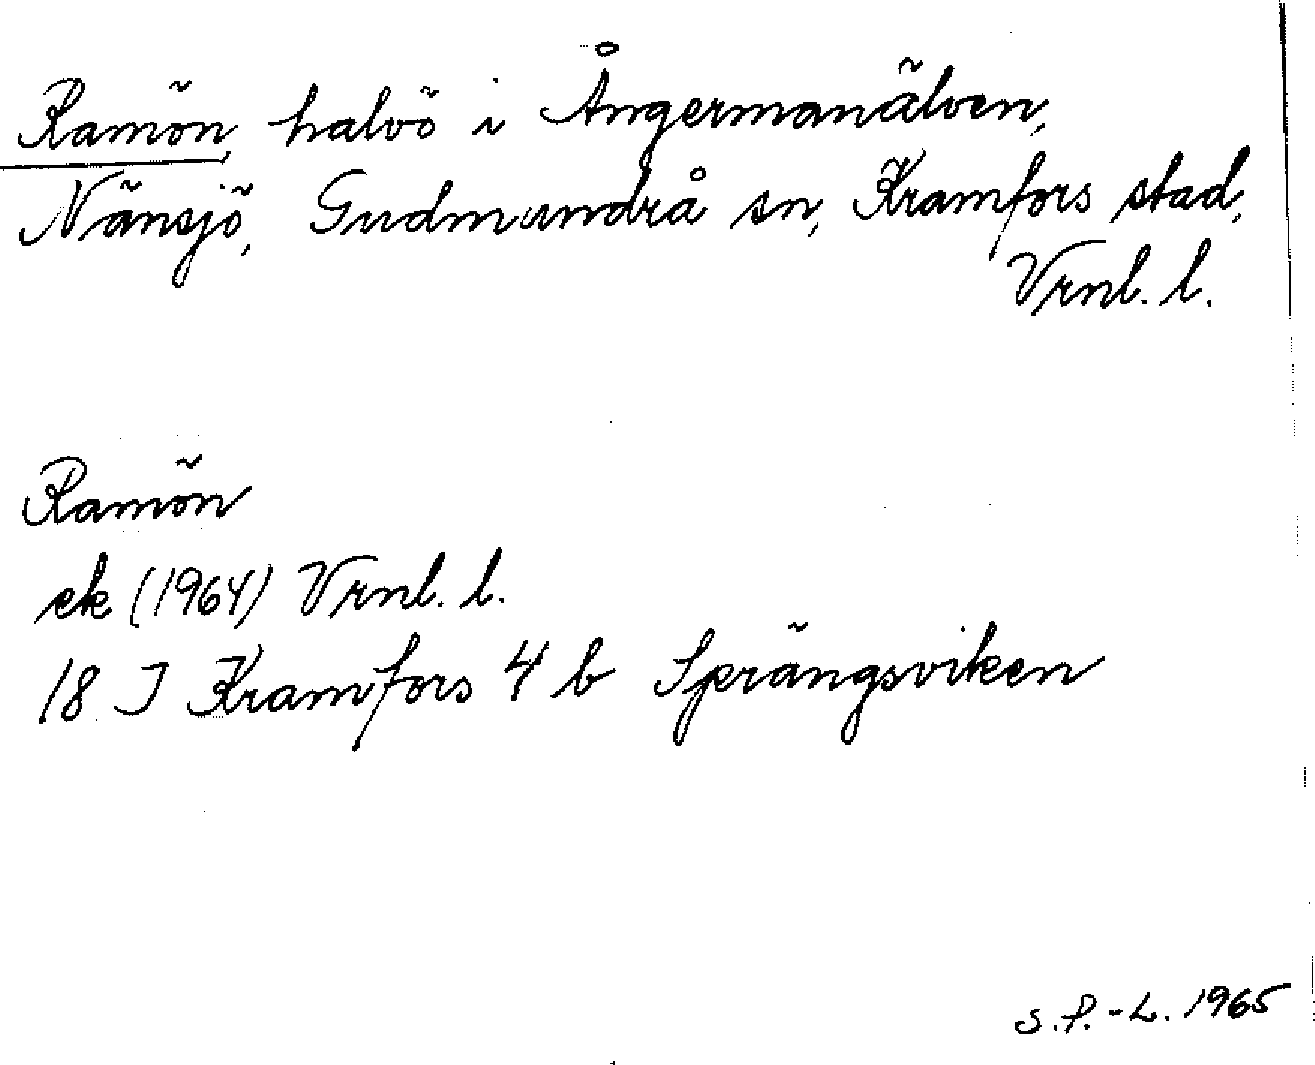 Ramön, halvö i Ångermanälven,
Nänsjö, Gudmundrå sn, Kramfors stad,
Vrnl. l.
Ramön
ek (1964) Vrnl. l.
18 I Kramfors 4 b Sprängsviken
S.P.-L. 1965